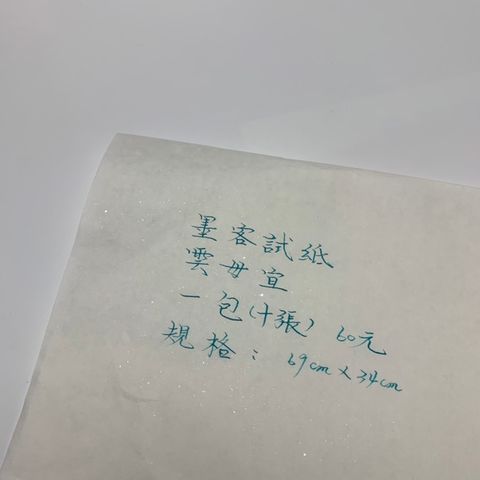 墨客試紙
雲母宣
一包(十張) 60元
規格： 69cm x 34cm